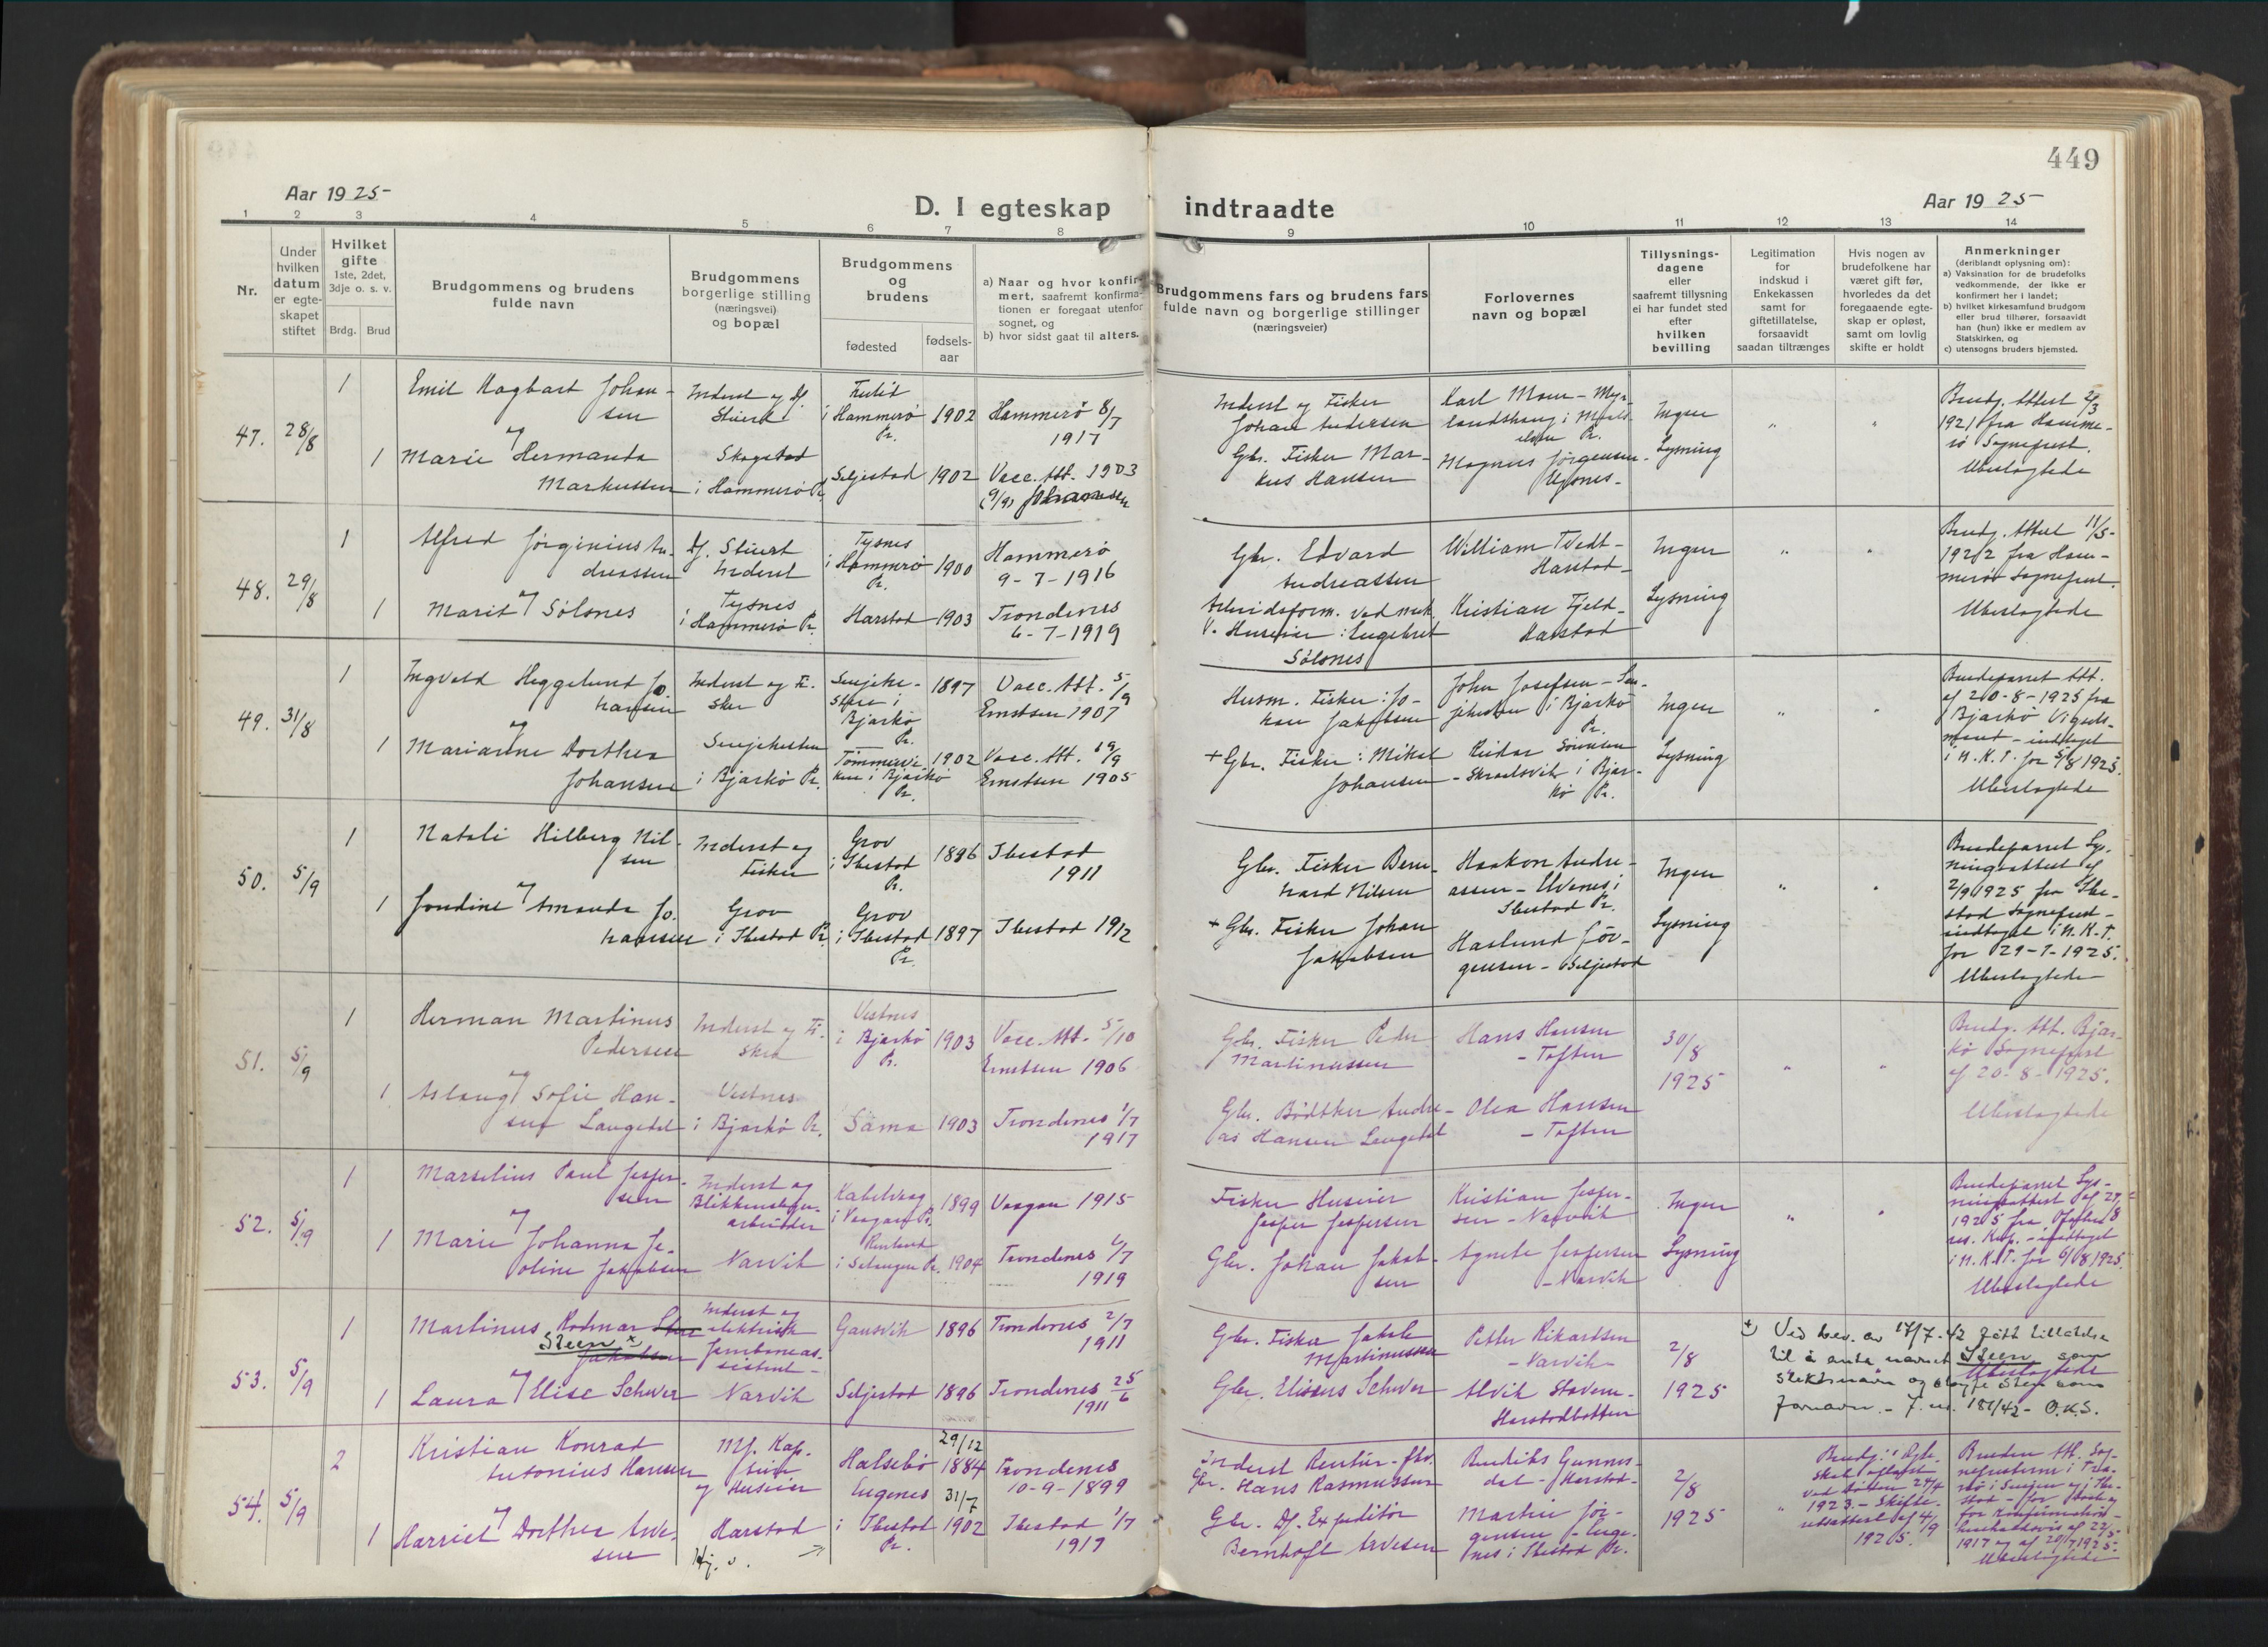 449
Aar 1925
D. I egteskap indtraadte
Aar 1925
1 2 3 4 5 6 7 8 9 10 11 12 13 14
Nr.
Under hvilken datum er egteskapet stiftet
Hvilket gifte
1ste, 2det, 3dje o. s. v.
Brdg. Brud
Brudgommens og brudens
fulde navn
Brudgommens
borgerlige stilling
(næringsvei)
og bopæl
Brudgommens
og
brudens
fødested
fødsels-
aar
a) Naar og hvor konfir-
mert, saafremt konfirma-
tionen er foregaat utenfor
sognet, og
b) hvor sidst gaat til alters.
Brudgommens fars og brudens fars
fulde navn og borgerlige stillinger
(næringsveier)
Forlovernes
navn og bopæl
Tillysnings-
dagene
eller
saafremt tillysning
ei har fundet sted
efter
hvilken
bevilling
Legitimation
for
indskud i
Enkekassen
samt for
giftetillatelse,
forsaavidt
saadan tiltrænges
Hvis nogen av
brudefolkene har
været gift før,
hvorledes da det
foregaaende egte-
skap er opløst,
samt om lovlig
skifte er holdt
Anmerkninger
(deriblandt oplysning om):
a) Vaksination for de brudefolks
vedkommende, der ikke er
konfirmert her i landet;
b) hvilket kirkesamfund brudgom
eller brud tilhører, forsaavidt
han (hun) ikke er medlem av
Statskirken, og
c) utensogns bruders hjemsted.
47. 28/8
1
Emil Hagbart Johan-
sen
1
Marie Hermanda
Markussen
Inderst og
Skogstad
i Hammerø Pr.
i Hammerø
Pr.
1902
Seljestad 1902
Hammerø 8/7
1917
Vacc. Att. 1903
Johannesen
Inderst og Fisker
Johan Andersen
Gbr. Fisker Mar-
kus Hansen
Karl Moen
Magnus Jørgensen
Ingen
Lysning
Brudg. Attest
1921 fra Hamme-
rø Sogneprest.
Ubeslægtede
48. 29/8
1
Alfred Jørginius An-
dreassen
1
Marit Sølsnes
Inderst
Tysnes
i Hammerø Pr.
Tysnes
i Hammerø
Pr.
1900
Harstad 1903
Hammerø
9-7-1916
Trondenes
6-7-1919
Gbr. Edvard
Andreassen
Arbeidsform. ved
Huseier: Engebret
Sølsnes
William Tvedt-
Harstad
Kristian Fjeld-
Harstad
Ingen
Lysning
Brudg. Attest 11/5-
1922 fra Ham-
merøs Sogneprest.
Ubeslægtede
49. 31/8
1
Ingvald Heggelund Jo-
hansen
1
Marianne Dorthea
Johansen
Inderst og Fi-
sker
i Bjarkø Pr.
Bjarkø
Pr.
1897
i Bjarkø
Pr.
1902
Vacc. Att. 5/9
Ernstsen 1907
Vacc. Att. 19/9
Ernstsen 1905
Husm. Fisker: Jo-
han Jakobsen
+ Gbr. Fisker: Mikal
Johansen
John Josefsen
i Bjarkø
Pr.
Reidar Sørensen
- Skraalsvik i Bjar-
kø Pr.
Ingen
Lysning
Brudeparret Att.
af 20-8-1925 fra
Bjarkø Vigsels-
- indtaget
i N. K. T. for 5/8 1925.
Ubeslægtede
50. 5/9
1
Natali Hilberg Nil-
sen
1
Jondine Amanda Jo-
hansen
Inderst og
Fisker
Grov
i Ibestad Pr.
Grov
i Ibestad
Pr.
1896
Grov
i Ibestad
Pr.
1897
Ibestad
1911
Ibestad 1912
Gbr. Fisker Bern-
hard Nilsen
+ Gbr. Fisker Johan
Jakobsen
Haakon Andre-
assen - Elvenes i
Ibestad Pr.
Haslund Jør-
gensen - Seljestad
Ingen
Lysning
Brudeparret Lys-
ningsattest af
2/9 1925 fra Ibe-
stad Sogneprest -
indtaget i N. K. T.
for 29-7-1925.
Ubeslægtede
51. 5/9
1
Herman Martinus
Pedersen
1
Aslaug Sofie Han-
sen Langedal
Inderst og Fi-
sker
Vestnes
i Bjarkø Pr.
Vestnes
i Bjarkø
Pr.
1903
Sama 1903
Vacc. Att. 5/10
Ernstsen 1906
Trondenes 1/7
1917
Gbr. Fisker Peder
Martinussen
Gbr. Bødtker Andre-
as Hansen Langedal
Hans Hansen
- Toften
Olea Hansen
- Toften
30/8
1925
Brudg. Att. Bjar-
kø Sogneprest
af 20-8-1925.
Ubeslægtede
52. 5/9
1
Marselius Paul Jesper-
sen
1
Marie Johanna Je-
oline Jakobsen
Inderst og
Blikkenslager-
arbeider
Narvik
Kabelvaag
i Vaagan Pr.
1899
i Salangen Pr. 1904
Vaagan 1915
Trondenes 6/7
1919
Fisker Huseier
Jesper Jespersen
Gbr. Johan Jakob-
sen
Kristian Jesper-
sen - Narvik
Agnete Jespersen
- Narvik
Ingen
Lysning
Brudeparret Lys-
ningsattest af
1925 fra Ofoten
res. Kap. - indtaget
i N. K. T. for 6/8 1925.
Ubeslægtede
53. 5/9
1
Martinus Rodmar Steen
Steen x)
Jakobsen
1
Laura Elise Schver
Inderst og
elektrisk
Narvik
Gausvik 1896
Seljestad 1896
Trondenes 2/7
1911
Trondenes 25/6
1911
Gbr. Fisker Jakob
Martinussen
Gbr. Eliseus Schver
Petter Rikardsen
- Narvik
Alvik Stavem-
Harstadbotten
2/8
1925
x) Ved bev. av 17/7-42 gitt tillatelse
til å anta navnet Steen som
Ubeslægtede
slektsnavn og sløyfe Sten som
fornavn. - J. nr. 181/42 - O.K.S.
54. 5/9
2
Kristian Konrad
Antonius Hansen
1
Harriet Dorthea Arve-
sen
og Huseier
Harstad
Halsebø
29/12
1884
Engenes
i Ibestad
Pr.
31/7
1902
Trondenes
10-9-1899
Ibestad 1/7
1917
Inderst Rentier
Gbr. Hans Rasmussen
Gbr. Df. Expeditør
Bernhoft Arvesen
Bendiks Gunners-
dal - Harstad
Martin Jør-
gensen - Enge-
nes i Ibestad Pr.
2/8
1925
Brudg.: Egte-
skab opløst
ved Døden 24/4
1923. - Skifte-
rettsattest af 4/9
1925.
Bruden Att. Sog-
1917 og af 20/7 1925.
Ubeslægtede